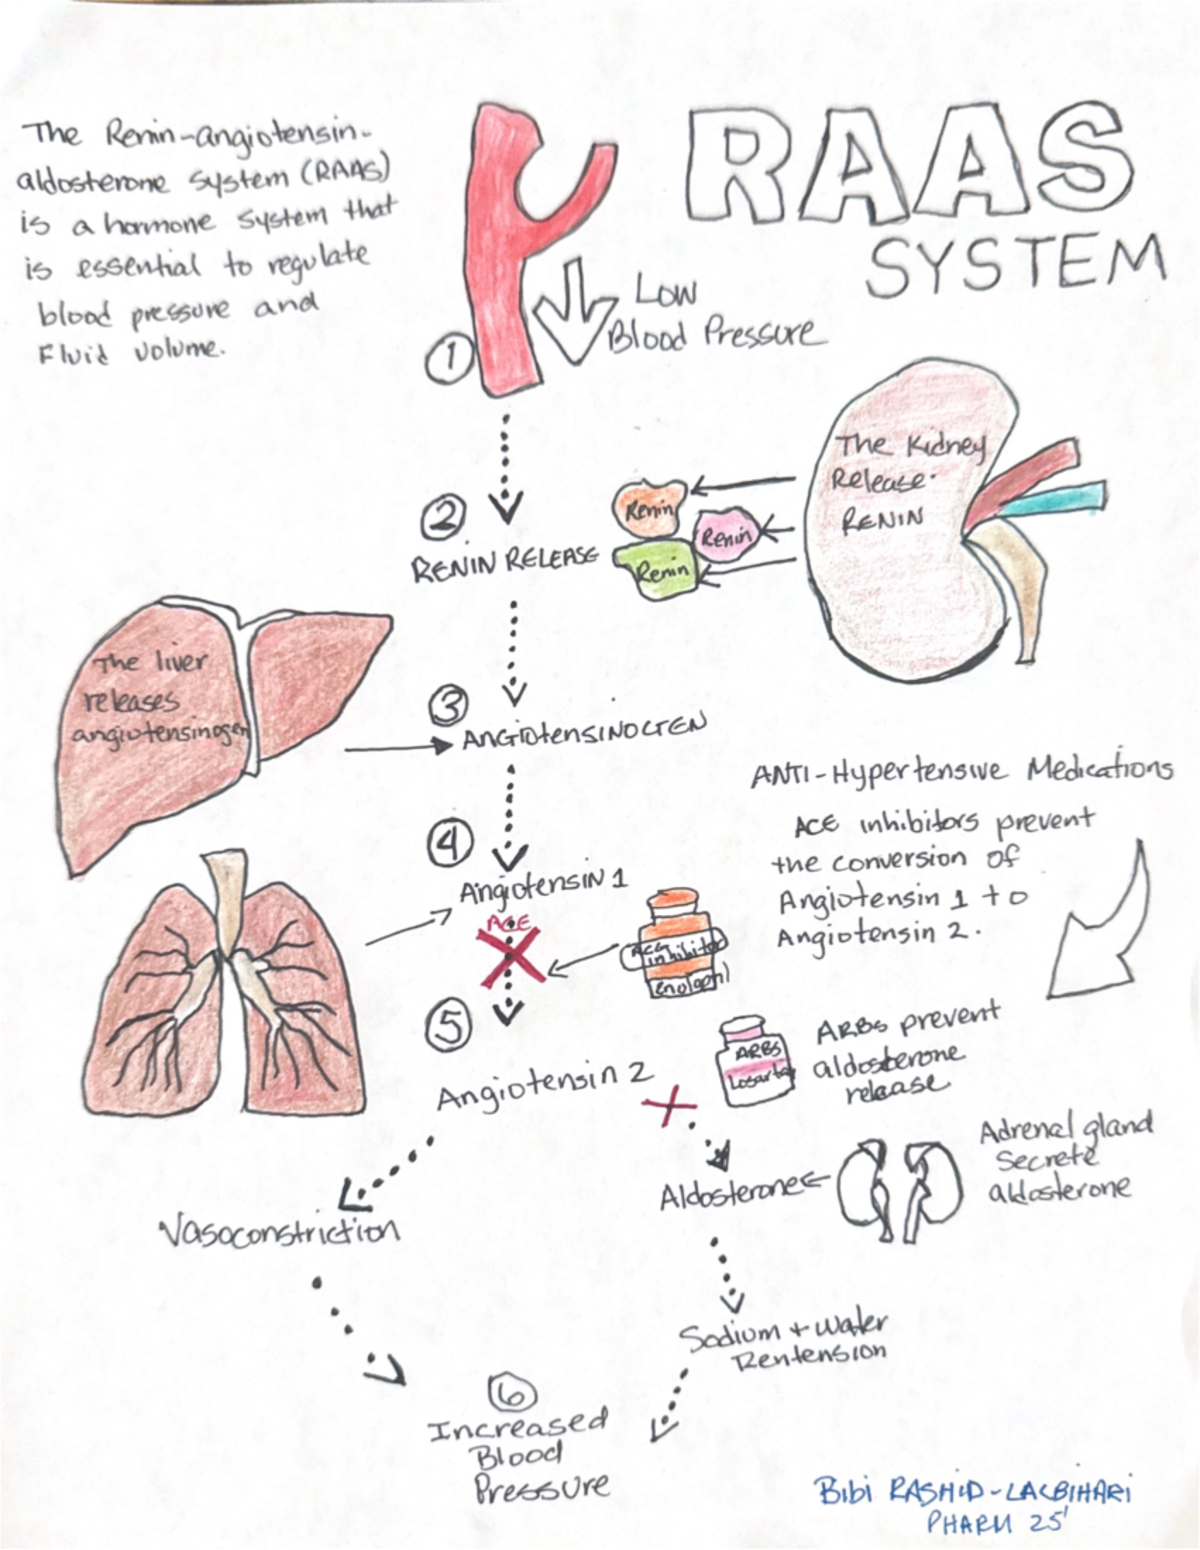 The Renin-angiotensin-
aldosterone system (RAAS)
is a hormone system that
is essential to regulate
blood pressure and
Fluid volume.
RAAS
SYSTEM
Low
Blood Pressure
1
The Kidney
Release
RENIN
2
RENIN RELEASE
Renin
Renin
Renin
The liver
releases
angiotensinogen
3
ANGIOTENSINOGEN
ANTI-Hypertensive Medications
ACE inhibitors prevent
the conversion of
Angiotensin 1 to
Angiotensin 2.
4
Angiotensin 1
ACE
ACE
inhibitor
5
Angiotensin 2
ARBS
Losarta
ARBs prevent
aldosterone
release
Adrenal gland
Secrete
aldosterone
Aldosterone
Vasoconstriction
Sodium + Water
Rentension
6
Increased
Blood
Pressure
Bibi RASHID-LALBIHARI
PHARM 25'